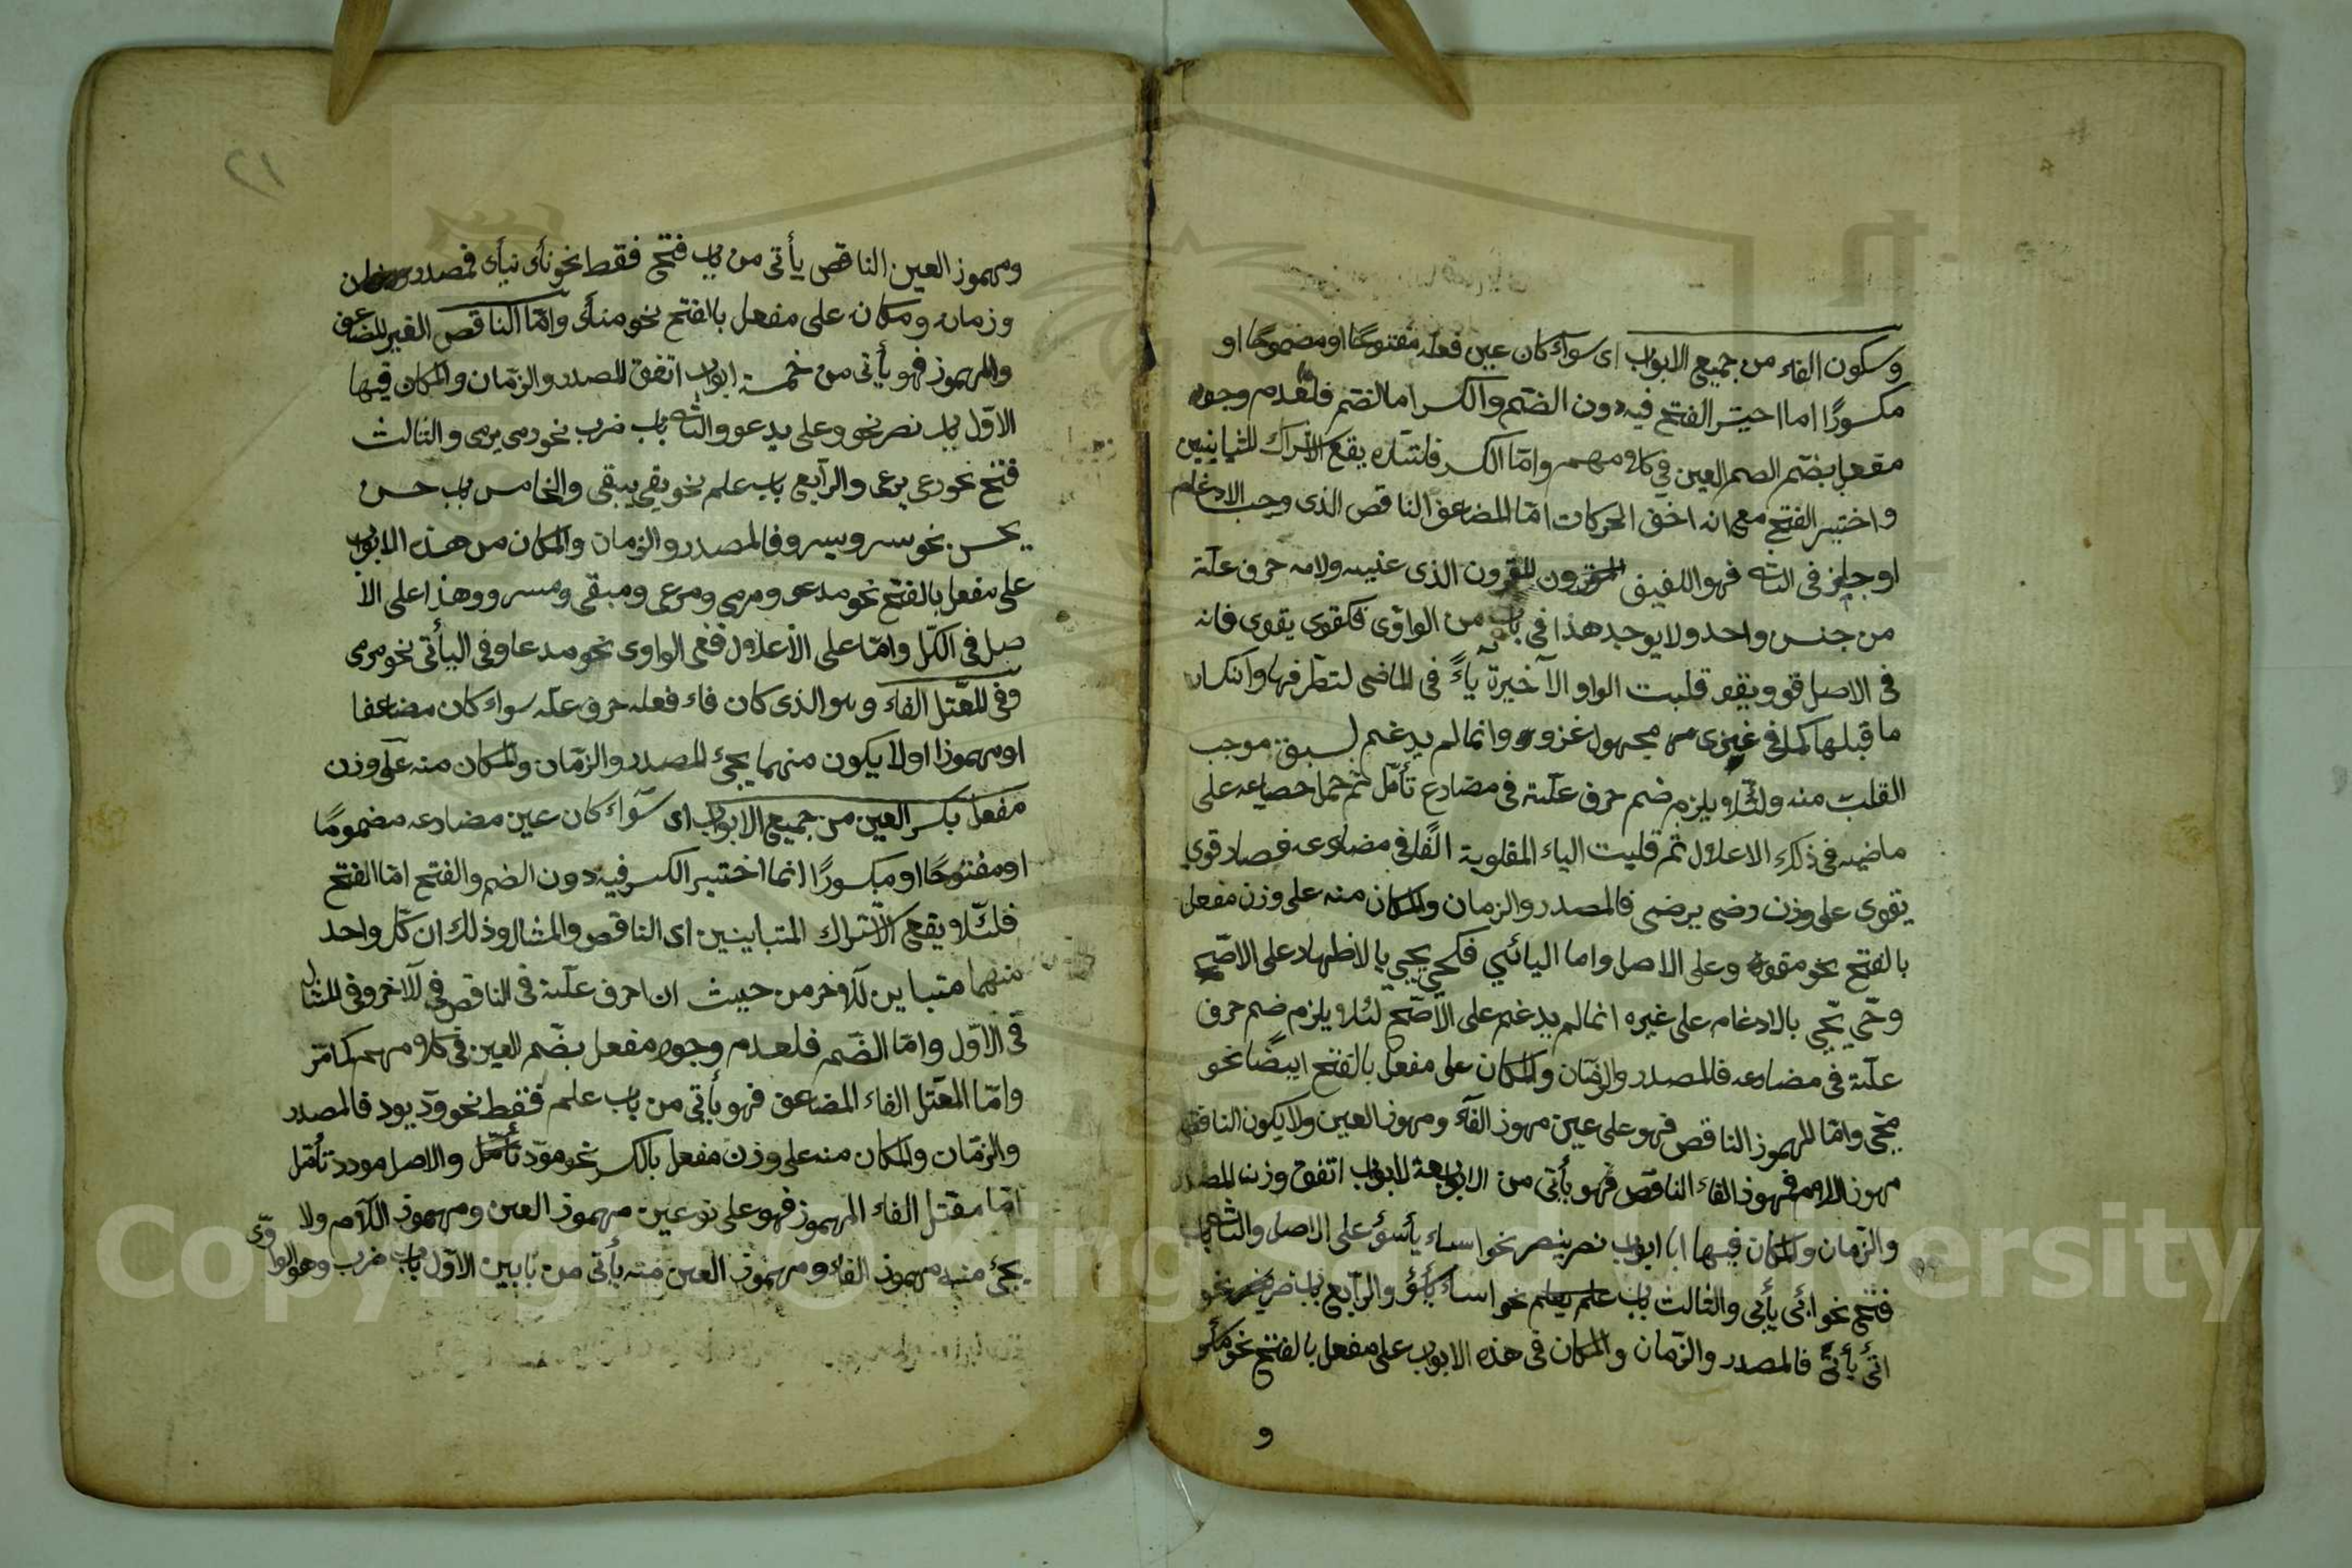 وسكون الفاء من جميع الابواب اى سوآء كان عين فعله مفتوحًا او مضمومًا او
مكسورًا اما اختير الفتح فيه دون الضم والكسر اما الضم فلعدم وجود
مفعل بضم العين فى كلامهم وامّا الكسر فلئلا يقع الاشتراك
واختير الفتح مع انه اخف الحركات امّا المضاعف الناقص الذى وجب الادغام
او جايز فى الثانى فهو اللفيف المقرون الذى عينه ولامه حرف علّة
من جنس واحد ولا يوجد هذا فى باب من الواوى فكقوى يقوى فانه
فى الاصل قوو يقوو قلبت الواو الاخيرة ياءً فى الماضى لتطرفها وانكسار
ما قبلها كما فى غزى من مجهول غزو وانما لم يدغم لسبق موجب
القلب منه ولئلا يلزم ضم حرف علّة فى مضارع تأمّل ثم حمل مضارعه على
ماضيه فى ذلك الاعلال ثم قلبت الياء المقلوبة الفًا فى مضارعه فصار قوى
يقوى على وزن رضى يرضى فالمصدر والزمان والمكان منه على وزن مفعل
بالفتح نحو مقوى وعلى الاصل واما اليائى فكحيى يحيى بالاظهار على الاصح
وحىّ يحىّ بالادغام على غيره انما لم يدغم على الاصّح لئلا يلزم ضم حرف
علّة فى مضارعه فالمصدر والزمان والمكان على مفعل بالفتح ايضًا نحو
محى وامّا المهموز الناقص فهو على عين مهموز الفآء ومهموز العين ولا يكون الناقص
مهموز اللام فمهموز الفاء الناقص فهو يأتى من الاربعة الابواب اتفق وزن المصدر
والزمان والمكان فيها ابواب نصر ينصر نحو اساء يأسؤ على الاصل والثانى باب
فتح نحو ابى يأبى والثالث باب علم يعلم نحو والرابع باب ضرب نحو
اتى يأتى فالمصدر والزمان والمكان فى هذه الابواب على مفعل بالفتح نحو
و
٢١
ومهموز العين الناقص يأتى من باب فتح فقط نحو نأى ينأى فمصدر
وزمان ومكان على مفعل بالفتح نحو منأى وامّا الناقص الغير المضاعف
والمهموز فهو يأتى من خمسة ابواب اتفق المصدر والزمان والمكان فيها
الاوّل باب نصر نحو دعى يدعو والثانى باب ضرب نحو رمى يرمى والثالث
فتح نحو رعى يرعى والرابع باب علم نحو بقى يبقى والخامس باب حسن
يحسن نحو سرو يسرو فالمصدر والزمان والمكان من هذه الابواب
على مفعل بالفتح نحو مدعو ومرمى ومرعى ومبقى ومسرو وهذا على الا
صل فى الكلّ وامّا على الاعلال ففى الواوى نحو مدعا وفى اليائى نحو مرمى
وفى المعتل الفاء وهو الذى كان فاء فعله حرف علّه سواء كان مضاعفا
او مهموزا او لا يكون منهما يجئ المصدر والزمان والمكان منه على وزن
مفعل بكسر العين من جميع الابواب اى سوآء كان عين مضارعه مضمومًا
او مفتوحًا او مكسورًا انما اختير الكسر فيه دون الضم والفتح امّا الفتح
فلئلا يقع الاشتراك المتباينين اى الناقص والمثال وذلك ان كلّ واحد
منهما متباين للآخر من حيث ان حرف علّة فى الناقص فى الآخر وفى المثال
فى الاوّل وامّا الضّم فلعدم وجود مفعل بضّم العين فى كلامهم كما مرّ
وامّا المعتل الفاء المضاعف فهو يأتى من باب علم فقط نحو ودّ يود فالمصدر
والزمان والمكان منه على وزن مفعل بالكسر نحو مودّ تأمّل والاصل مودد تأمّل
امّا معتل الفاء المهموز فهو على نوعين مهموز العين ومهموز اللام ولا
يجئ منه مهموز الفاء ومهموز العين منه يأتى من بابين الاوّل باب ضرب وهو الواوّى
Copyright © King Saud University